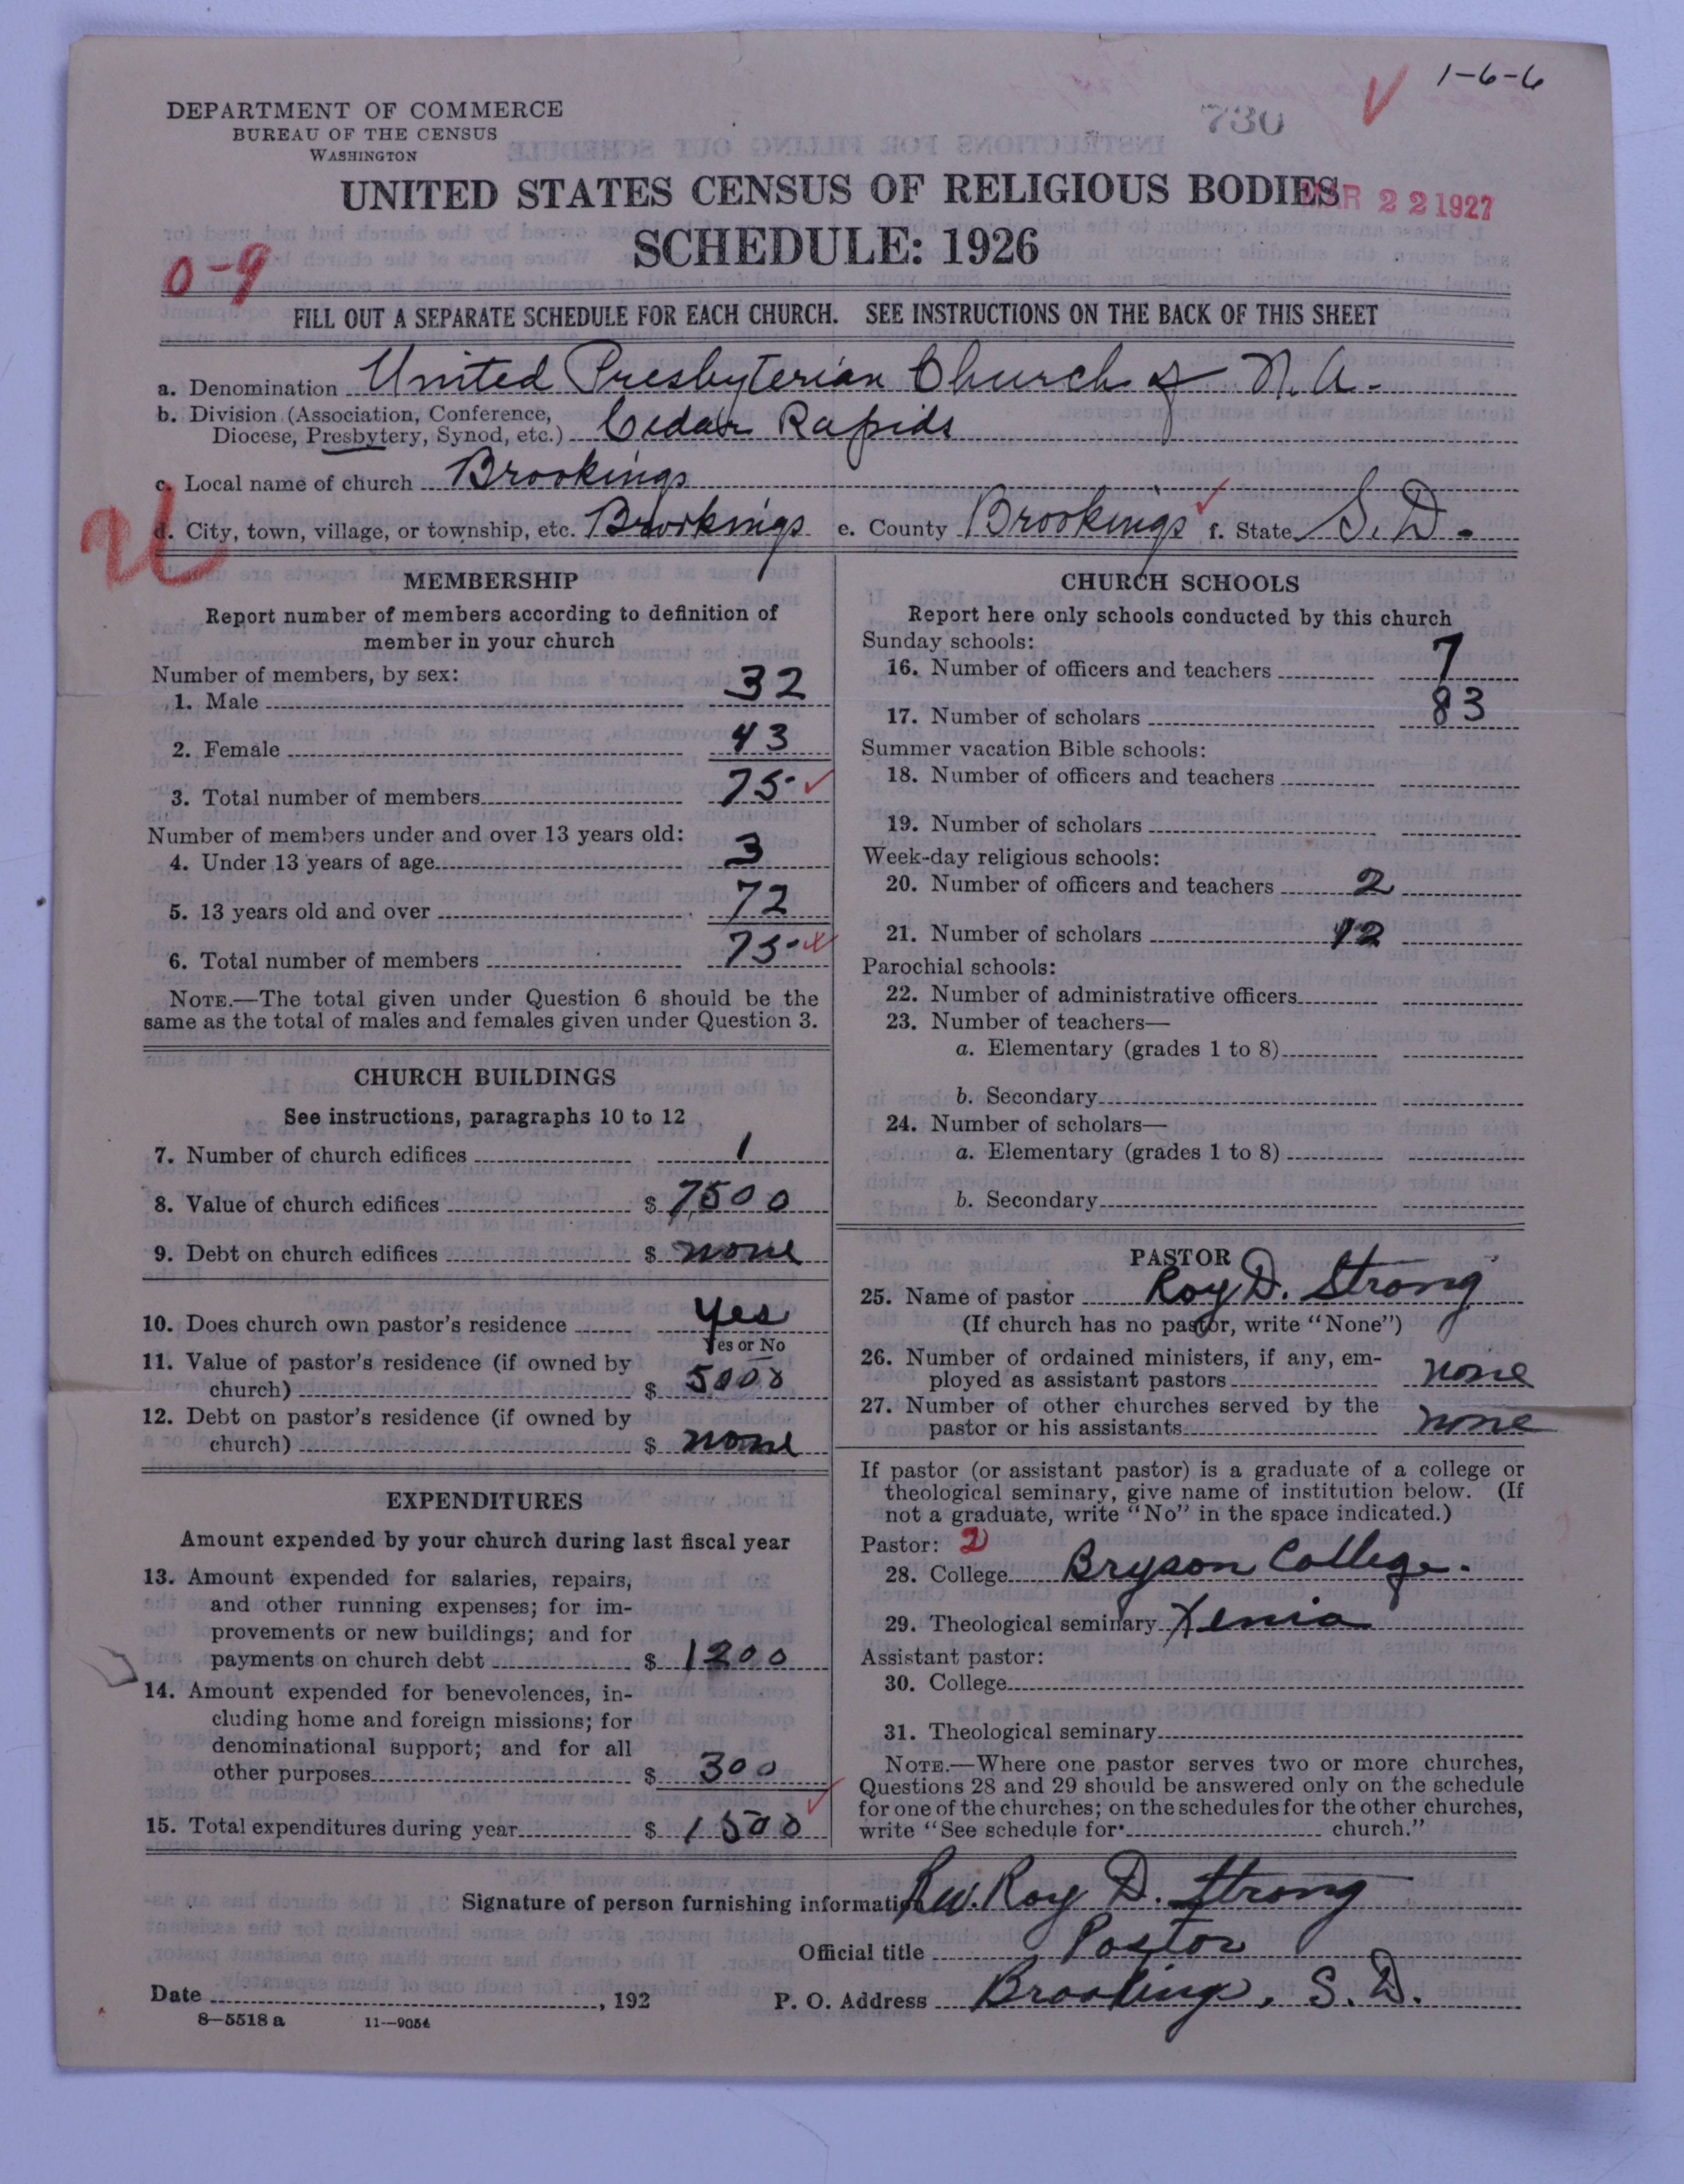 1-6-6
730
DEPARTMENT OF COMMERCE
BUREAU OF THE CENSUS
WASHINGTON
UNITED STATES CENSUS OF RELIGIOUS BODIES
MAR 22 1927
SCHEDULE: 1926
0-9
FILL OUT A SEPARATE SCHEDULE FOR EACH CHURCH. SEE INSTRUCTIONS ON THE BACK OF THIS SHEET
a. Denomination United Presbyterian Church of N.A.
b. Division (Association, Conference,
Diocese, Presbytery, Synod, etc.) Cedar Rapids
c. Local name of church Brookings
d. City, town, village, or township, etc. Brookings e. County Brookings f. State S.D.
MEMBERSHIP
Report number of members according to definition of
member in your church
Number of members, by sex:
1. Male 32
2. Female 43
3. Total number of members 75
Number of members under and over 13 years old:
4. Under 13 years of age 3
5. 13 years old and over 72
6. Total number of members 75
NOTE.—The total given under Question 6 should be the
same as the total of males and females given under Question 3.
CHURCH BUILDINGS
See instructions, paragraphs 10 to 12
7. Number of church edifices 1
8. Value of church edifices $ 7500
9. Debt on church edifices $ none
10. Does church own pastor's residence yes
Yes or No
11. Value of pastor's residence (if owned by
church) $ 5000
12. Debt on pastor's residence (if owned by
church) $ none
EXPENDITURES
Amount expended by your church during last fiscal year
13. Amount expended for salaries, repairs,
and other running expenses; for im-
provements or new buildings; and for
payments on church debt $ 1200
14. Amount expended for benevolences, in-
cluding home and foreign missions; for
denominational support; and for all
other purposes $ 300
15. Total expenditures during year $ 1500
CHURCH SCHOOLS
Report here only schools conducted by this church
Sunday schools:
16. Number of officers and teachers 7
17. Number of scholars 83
Summer vacation Bible schools:
18. Number of officers and teachers
19. Number of scholars
Week-day religious schools:
20. Number of officers and teachers 2
21. Number of scholars 12
Parochial schools:
22. Number of administrative officers
23. Number of teachers—
a. Elementary (grades 1 to 8)
b. Secondary
24. Number of scholars—
a. Elementary (grades 1 to 8)
b. Secondary
PASTOR
25. Name of pastor Roy D. Strong
(If church has no pastor, write "None")
26. Number of ordained ministers, if any, em-
ployed as assistant pastors none
27. Number of other churches served by the
pastor or his assistants none
If pastor (or assistant pastor) is a graduate of a college or
theological seminary, give name of institution below. (If
not a graduate, write "No" in the space indicated.)
Pastor: 2
28. College Bryson College.
29. Theological seminary Xenia
Assistant pastor:
30. College
31. Theological seminary
NOTE.—Where one pastor serves two or more churches,
Questions 28 and 29 should be answered only on the schedule
for one of the churches; on the schedules for the other churches,
write "See schedule for church."
Signature of person furnishing information Rev. Roy D. Strong
Official title Pastor
Date , 192 P. O. Address Brookings, S. D.
8—5518 a 11—9054